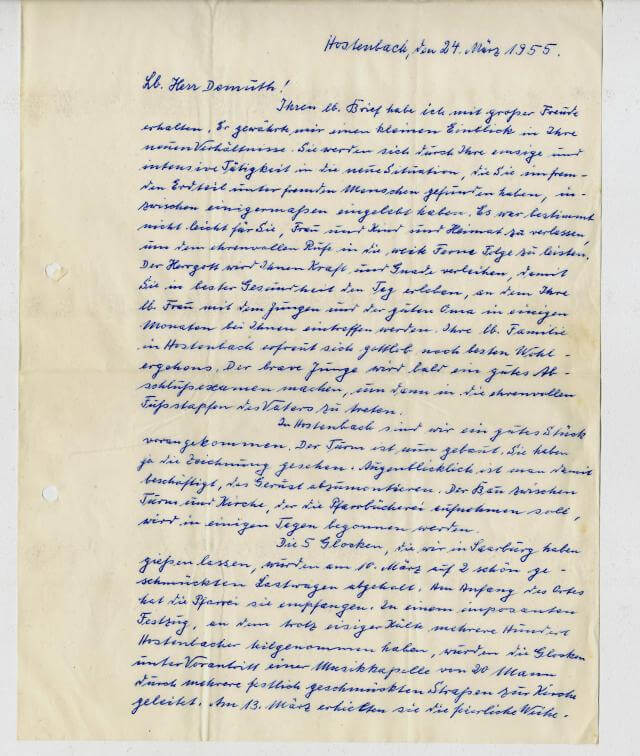 Hostenbach, den 24. März 1955.
Lb. Herr Demuth!
Ihren lb. Brief habe ich mit großer Freude
erhalten. Er gewährte mir einen kleinen Einblick in Ihre
neuen Verhältnisse. Sie werden sich durch Ihre emsige und
intensive Tätigkeit in die neue Situation, die Sie im frem-
den Erdteil unter fremden Menschen gefunden haben, in-
zwischen einigermaßen eingelebt haben. Es war bestimmt
nicht leicht für Sie, Frau und Kind und Heimat zu verlassen,
um dem ehrenvollen Rufe in die weite Ferne Folge zu leisten.
Der Herrgott wird Ihnen Kraft und Gnade verleihen, damit
Sie in bester Gesundheit den Tag erleben, an dem Ihre
lb. Frau mit dem Jungen und der guten Oma in einigen
Monaten bei Ihnen eintreffen werden. Ihre lb. Familie
in Hostenbach erfreut sich gottlob noch besten Wohl-
ergehens. Der brave Junge wird bald ein gutes Ab-
schlußexamen machen, um dann in die ehrenvollen
Fußstapfen des Vaters zu treten.
In Hostenbach sind wir ein gutes Stück
vorangekommen. Der Turm ist nun gebaut. Sie haben
ja die Zeichnung gesehen. Augenblicklich ist man damit
beschäftigt, das Gerüst abzumontieren. Der Bau zwischen
Turm und Kirche, der die Pfarrbücherei aufnehmen soll,
wird in einigen Tagen begonnen werden.
Die 5 Glocken, die wir in Saarburg haben
gießen lassen, wurden am 10. März auf 2 schön ge-
schmückten Lastwagen abgeholt. Am Anfang des Ortes
hat die Pfarrei sie empfangen. In einem imposanten
Festzug, an dem trotz eisiger Kälte mehrere Hundert
Hostenbacher teilgenommen haben, wurden die Glocken
unter Vorantritt einer Musikkapelle von 20 Mann
durch mehrere festlich geschmückten Straßen zur Kirche
geleitet. Am 13. März erhielten sie die feierliche Weihe.